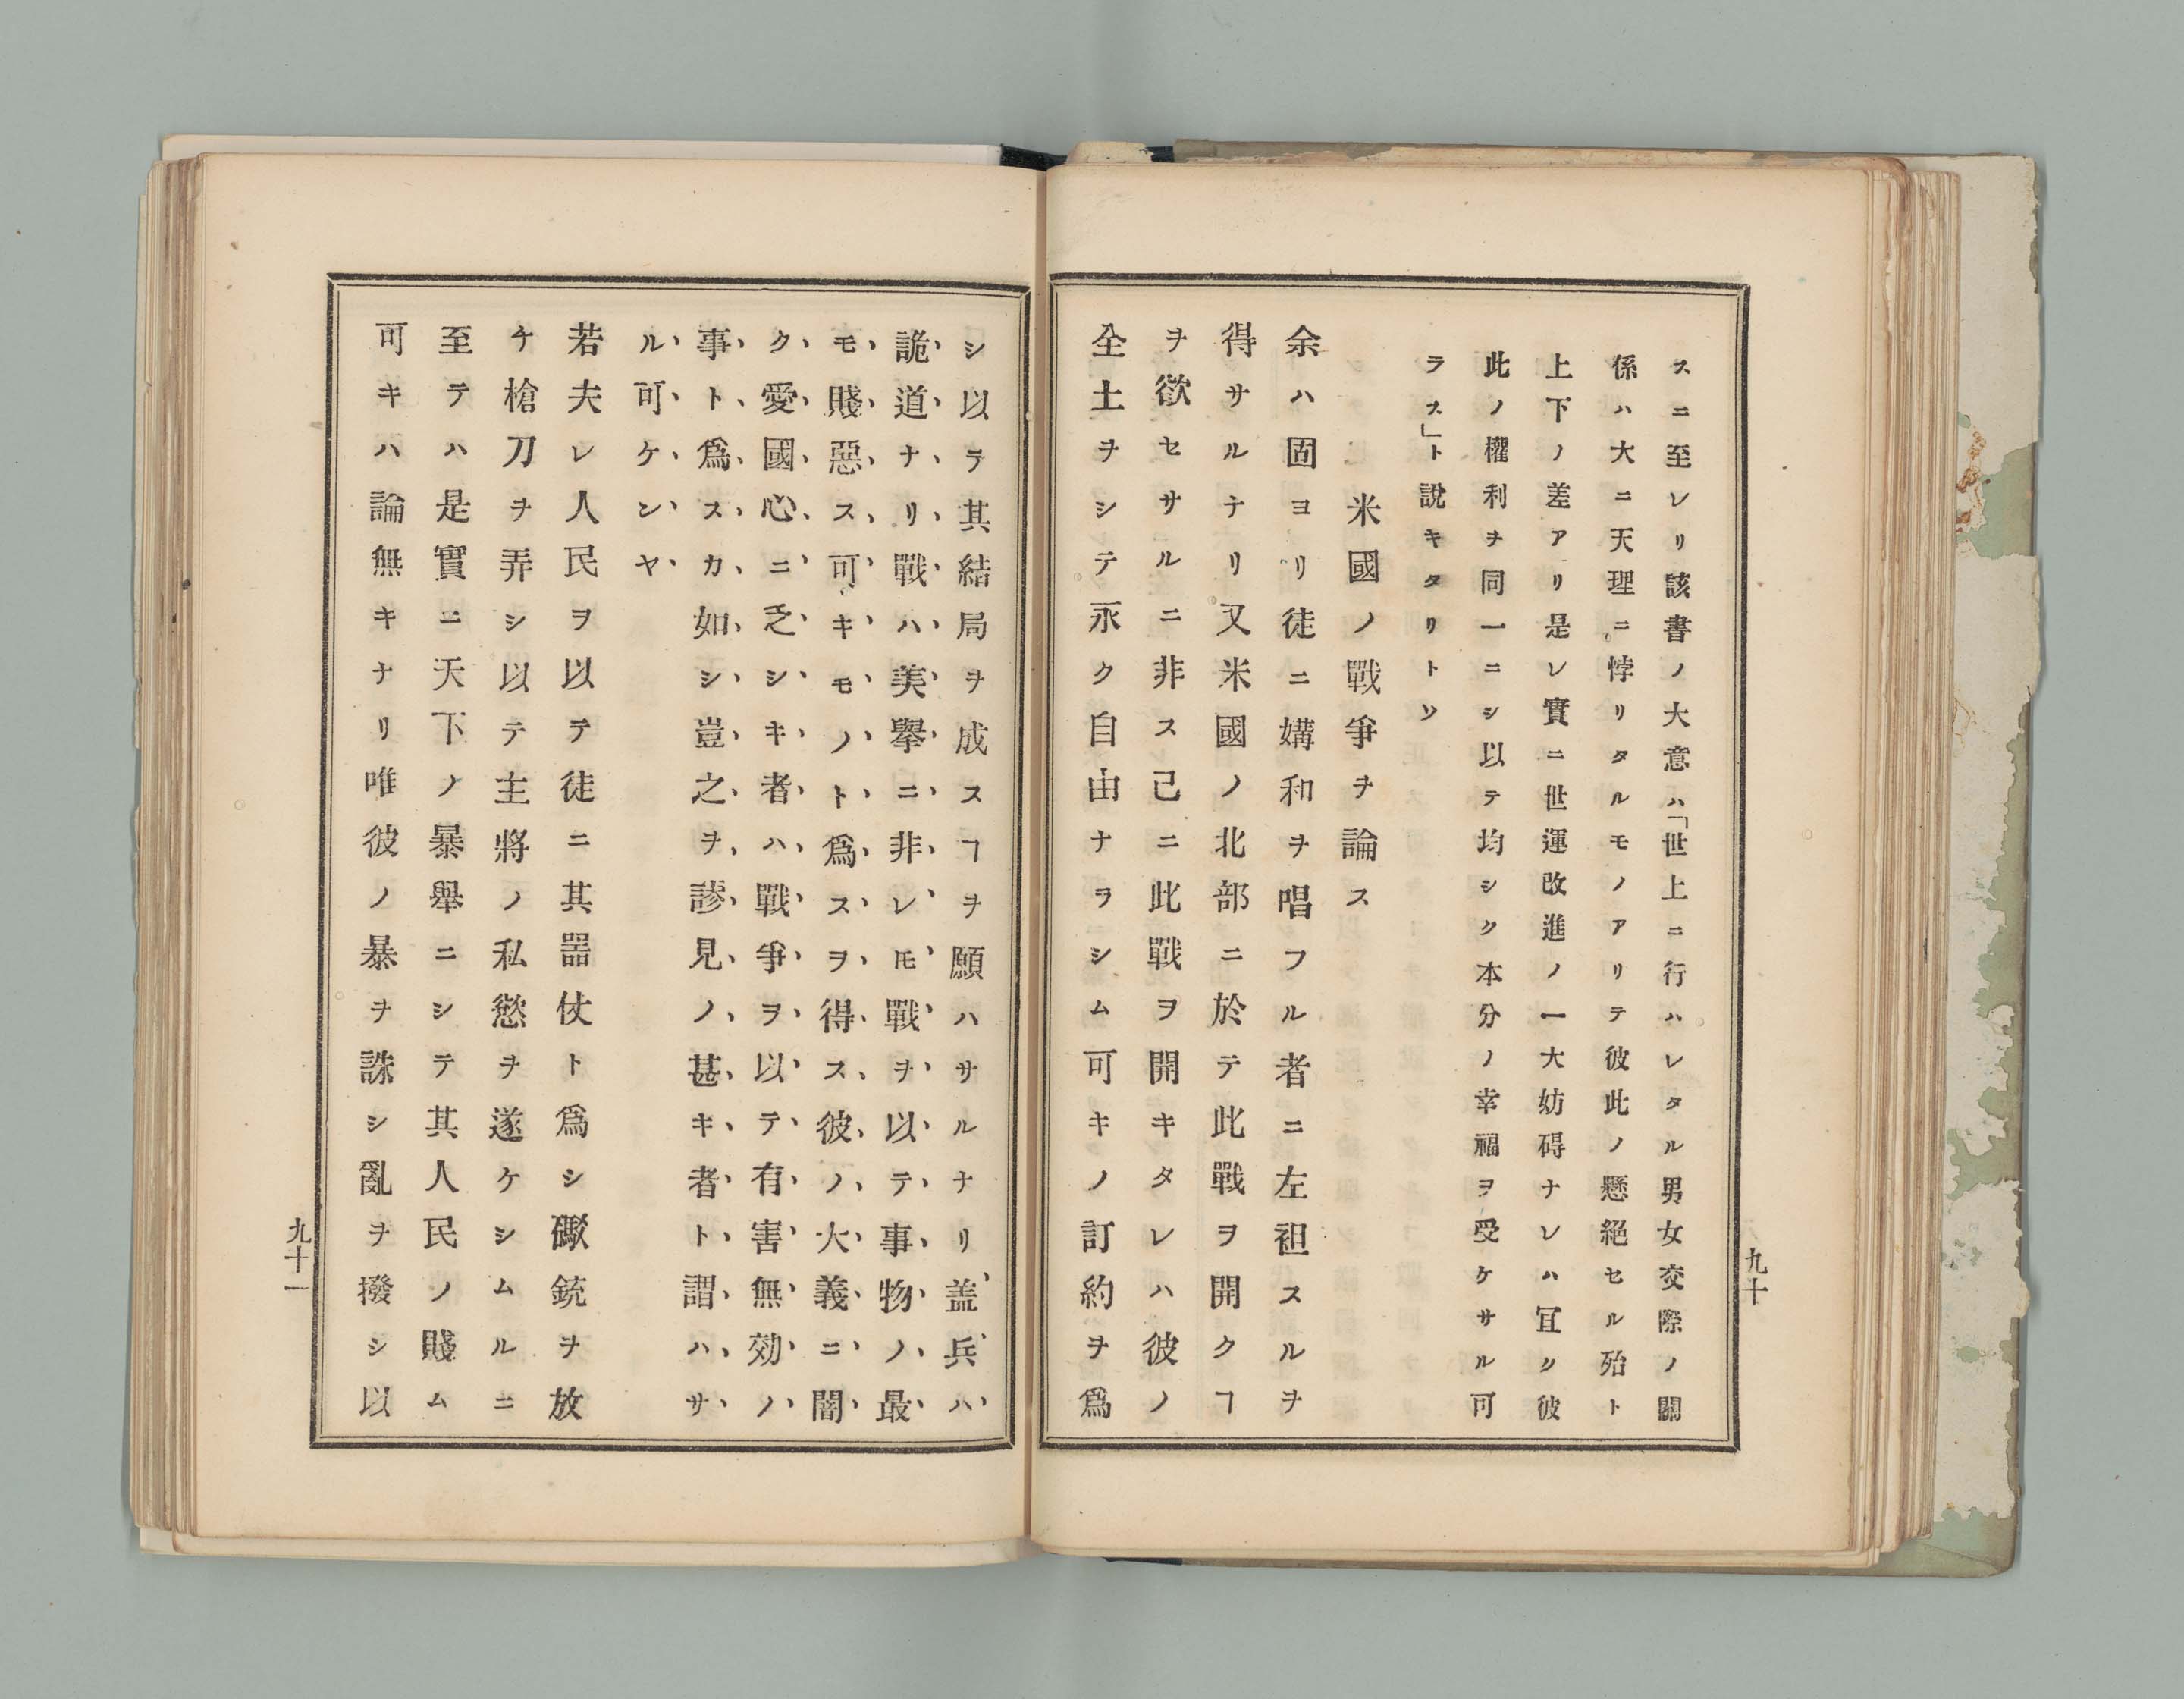 スニ至レリ該書ノ大意ハ「世上ニ行ハレタル男女交際ノ關
係ハ大ニ天理ニ悖リタルモノアリテ彼此ノ懸絕セル殆ト
上下ノ差アリ是レ實ニ世運改進ノ一大妨碍ナレハ冝ク彼
此ノ權利ヲ同一ニシ以テ均シク本分ノ幸福ヲ受ケサル可
ラス」ト說キタリトソ
米國ノ戰爭ヲ論ス
余ハ固ヨリ徒ニ媾和ヲ唱フル者ニ左袒スルヲ
得サルナリ又米國ノ北部ニ於テ此戰ヲ開クヿ
ヲ欲セサルニ非ス己ニ此戰ヲ開キタレハ彼ノ
全土ヲシテ永ク自由ナラシム可キノ訂約ヲ爲
九十
シ以テ其結局ヲ成スヿヲ願ハサルナリ盖兵ハ
詭道ナリ戰ハ美擧ニ非レ𪜈戰ヲ以テ事物ノ最
モ賤惡ス可キモノト爲スヲ得ス彼ノ大義ニ闇
ク愛國心ニ乏シキ者ハ戰爭ヲ以テ有害無効ノ
事ト爲スカ如シ豈之ヲ謬見ノ甚キ者ト謂ハサ
ル可ケンヤ
若夫レ人民ヲ以テ徒ニ其器仗ト爲シ礮銃ヲ放
ケ槍刀ヲ弄シ以テ主將ノ私慾ヲ遂ケシムルニ
至テハ是實ニ天下ノ暴擧ニシテ其人民ノ賤ム
可キハ論無キナリ唯彼ノ暴ヲ誅シ亂ヲ撥シ以
九十一